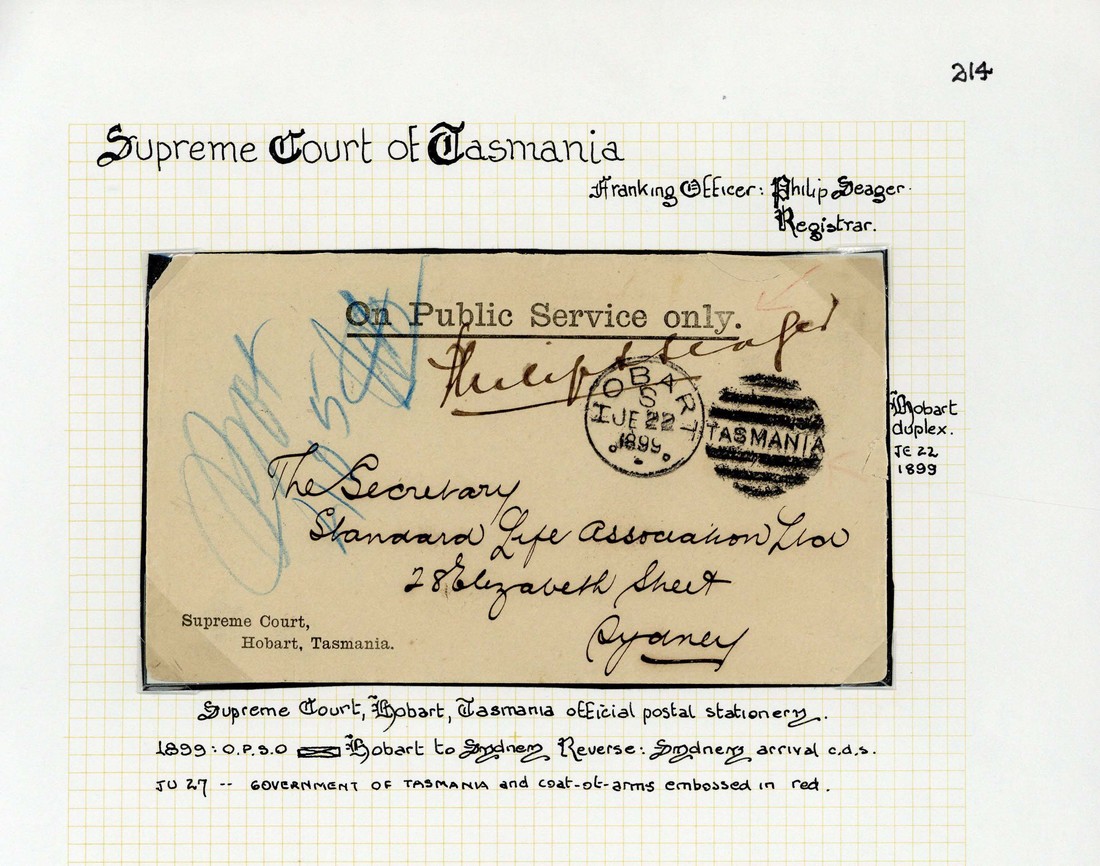 214
Supreme Court of Tasmania
Franking Officer: Philip Seager.
Registrar.
On Public Service only.
Philip S Seager
HOBART
S
JE 22
1899
TASMANIA
Hobart
duplex.
JE 22
1899
The Secretary
Standard Life Association Ltd
28 Elizabeth Street
Sydney
Supreme Court,
Hobart, Tasmania.
Supreme Court, Hobart, Tasmania official postal stationery.
1899: O.P.S.O Hobart to Sydney Reverse: Sydney arrival c.d.s.
JU 27 -- GOVERNMENT OF TASMANIA and coat-of-arms embossed in red.